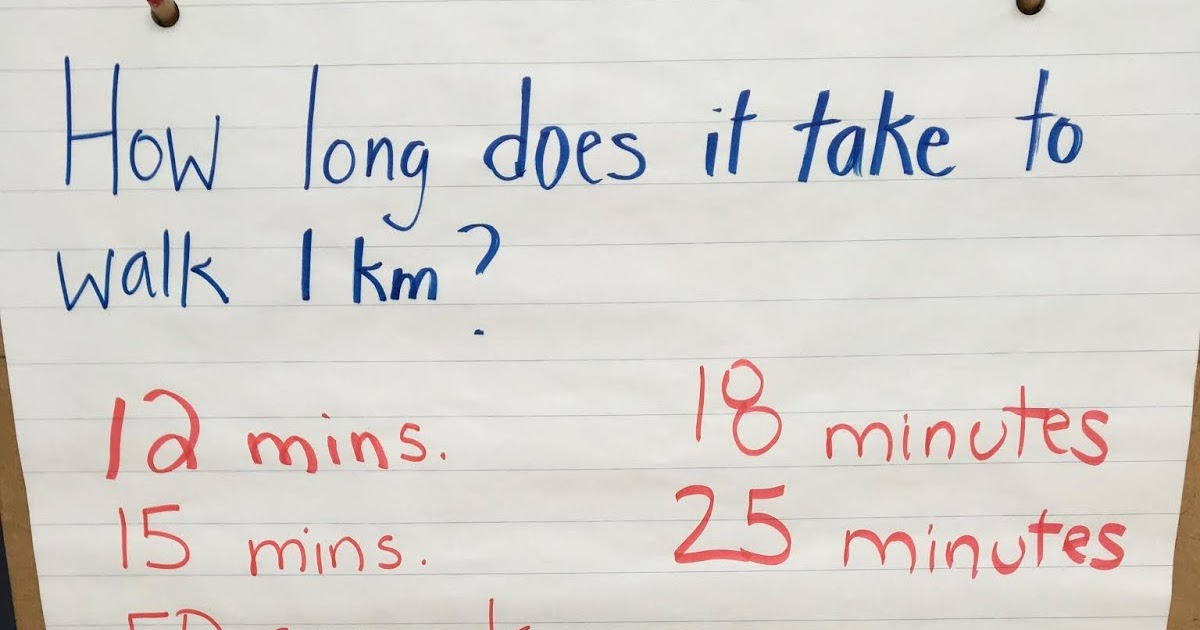 How long does it take to
walk 1 km?
12 mins.
18 minutes
15 mins.
25 minutes